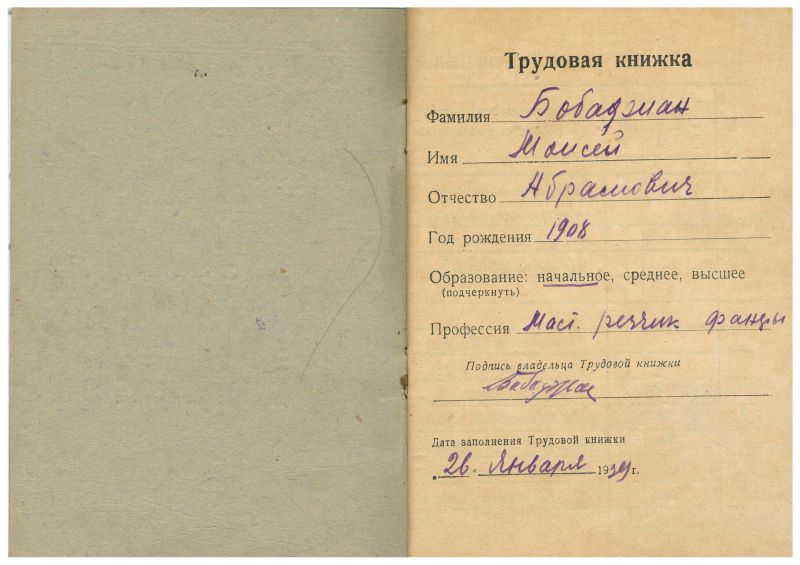 Трудовая книжка
Фамилия Бободжиан
Имя Моисей
Отчество Абрамович
Год рождения 1908
Образование: начальное, среднее, высшее
(подчеркнуть)
Профессия Маст. резчик
Подпись владельца Трудовой книжки
Дата заполнения Трудовой книжки
26 Января 1939 г.